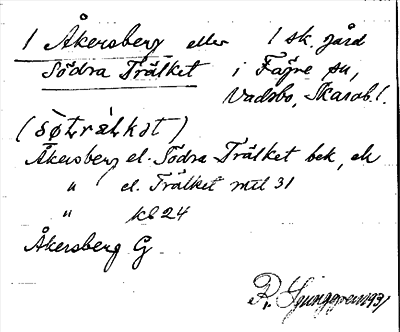 1 Åkersberg eller 1 sk. gård
Södra Trälket i Fägre sn,
Vadsbo, Skarab. l.
(sø̀trǽlkət)
Åkersberg el. Södra Trälket bek, ek
" el. Trälket mtl 31
" kb 24
Åkersberg G
R. Ljunggren 1931